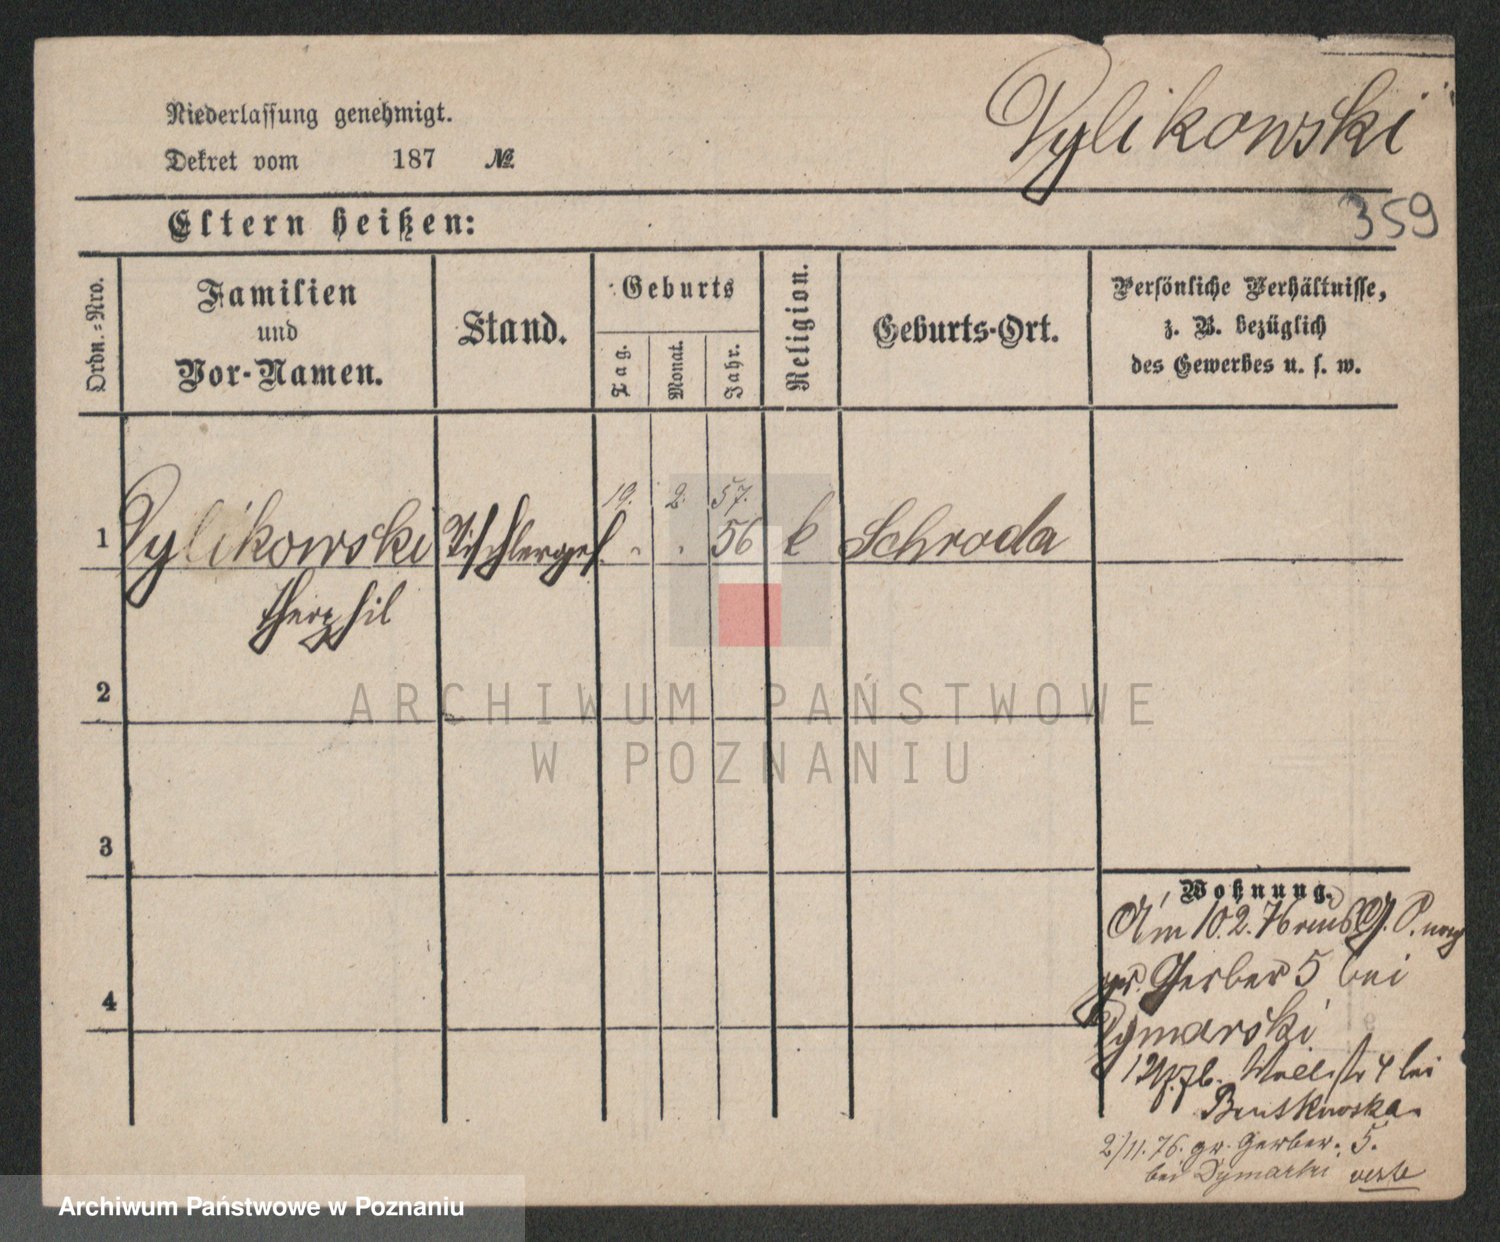 Niederlassung genehmigt.
Dekret vom 187 №
Dylikowski
359
Eltern heißen:
Ordn.-Nro.
Familien
und
Vor-Namen.
Stand.
Geburts
Tag.
Monat.
Jahr.
Religion.
Geburts-Ort.
Persönliche Verhältnisse,
z. B. bezüglich
des Gewerbes u. s. w.
19. 2. 57.
1 Dylikowski Tischlerges. " " 56 k Schroda
Theophil
2
3
4
Wohnung.
Am 10.2.76
gr. Gerber 5 bei
Dymarski
4 bei
2/11.76. gr. Gerber. 5.
bei Dymarski
ARCHIWUM PAŃSTWOWE
W POZNANIU
Archiwum Państwowe w Poznaniu